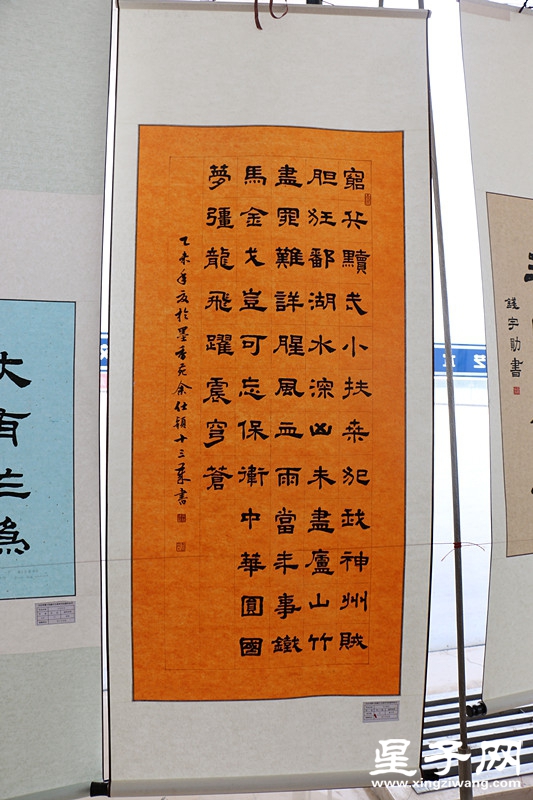 窮兵黷武小扶桒犯我神州賊
胆狂鄱湖水深凶未盡廬山竹
盡罪難詳腥風血雨當年事鐵
馬金戈豈可忘保衛中華圓國
夢彊龍飛躍震穹蒼
乙未年夏於墨香苑余仕穎十三歲書
大有
為
宇
書
艺
星子网
www.xingziwang.com